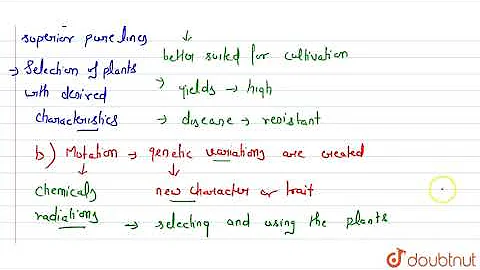 superior pure lines ↓
better suited for cultivation
→ Selection of plants
with desired → yields → high
characteristics → disease → resistant
b) Mutation → genetic variations are created
↓ ↓
chemicals new character or trait
radiations → selecting and using the plants
doubtnut